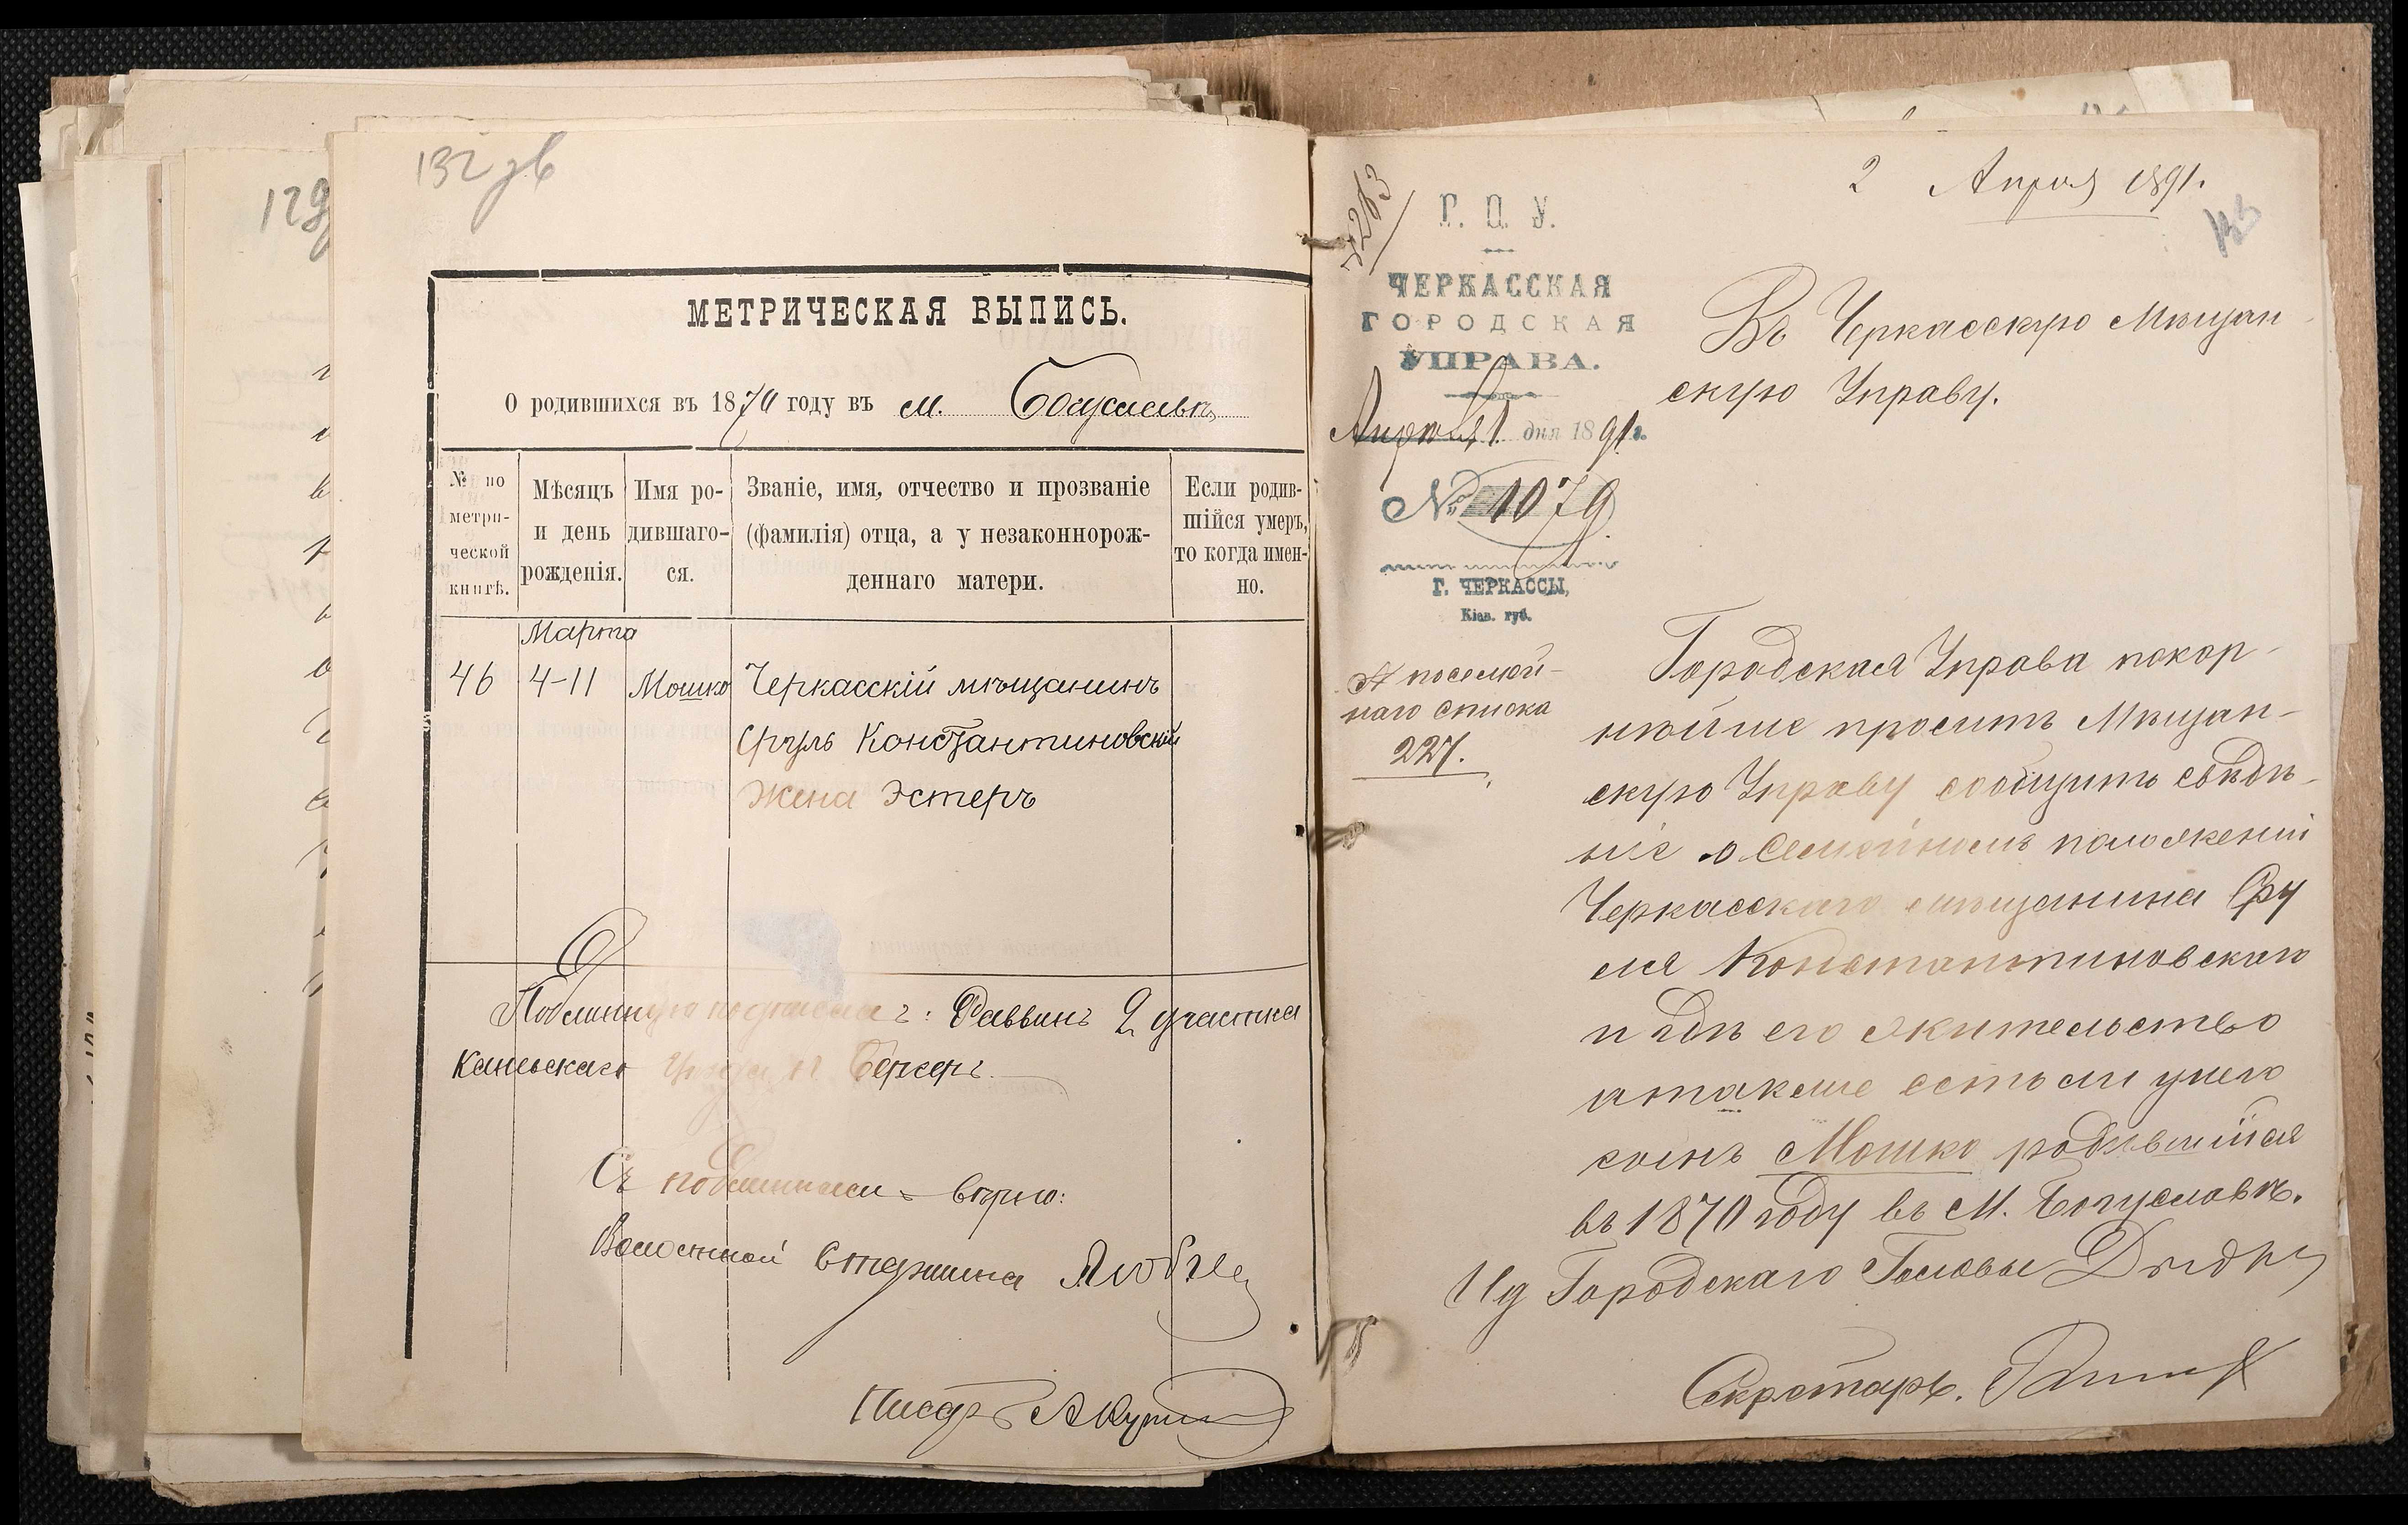 132 зв
МЕТРИЧЕСКАЯ ВЫПИСЬ.
О родившихся въ 1870 году въ м. Богуславѣ
№ по метри-ческой книгѣ.
Мѣсяцъ и день рожденія.
Имя ро-дившаго-ся.
Званіе, имя, отчество и прозваніе (фамилія) отца, а у незаконнорож-деннаго матери.
Если родив-шійся умеръ, то когда имен-но.
Марта
46 4-11 Мошко Черкасскій мѣщанинъ
Сруль Константиновскій
Жена Эстеръ
Подлинную подписалъ: Раввинъ 2 участка
Каневскаго уѣзда Бергеръ.
Съ подлиннымъ вѣрно:
Волостной Старшина
Писарь
129
2 Апрѣля 1891.
133
Г. О. У.
ЧЕРКАССКАЯ
ГОРОДСКАЯ
УПРАВА.
Апрѣля 1 дня 1891 г.
№ 1079
Г. ЧЕРКАССЫ,
Кіев. губ.
№ посемей-
наго списка
227.
Въ Черкасскую Мѣщан-
скую Управу.
Городская Управа покор-
нѣйше проситъ Мѣщан-
скую Управу сообщить свѣдѣ-
ніе о Семейномъ положеніи
Черкасскаго мѣщанина Сру
ля Константиновскаго
и гдѣ его жительство
а также есть ли у него
сынъ Мошко родившійся
въ 1870 году въ М. Богуславѣ.
Ид Городскаго Головы
Секретарь.